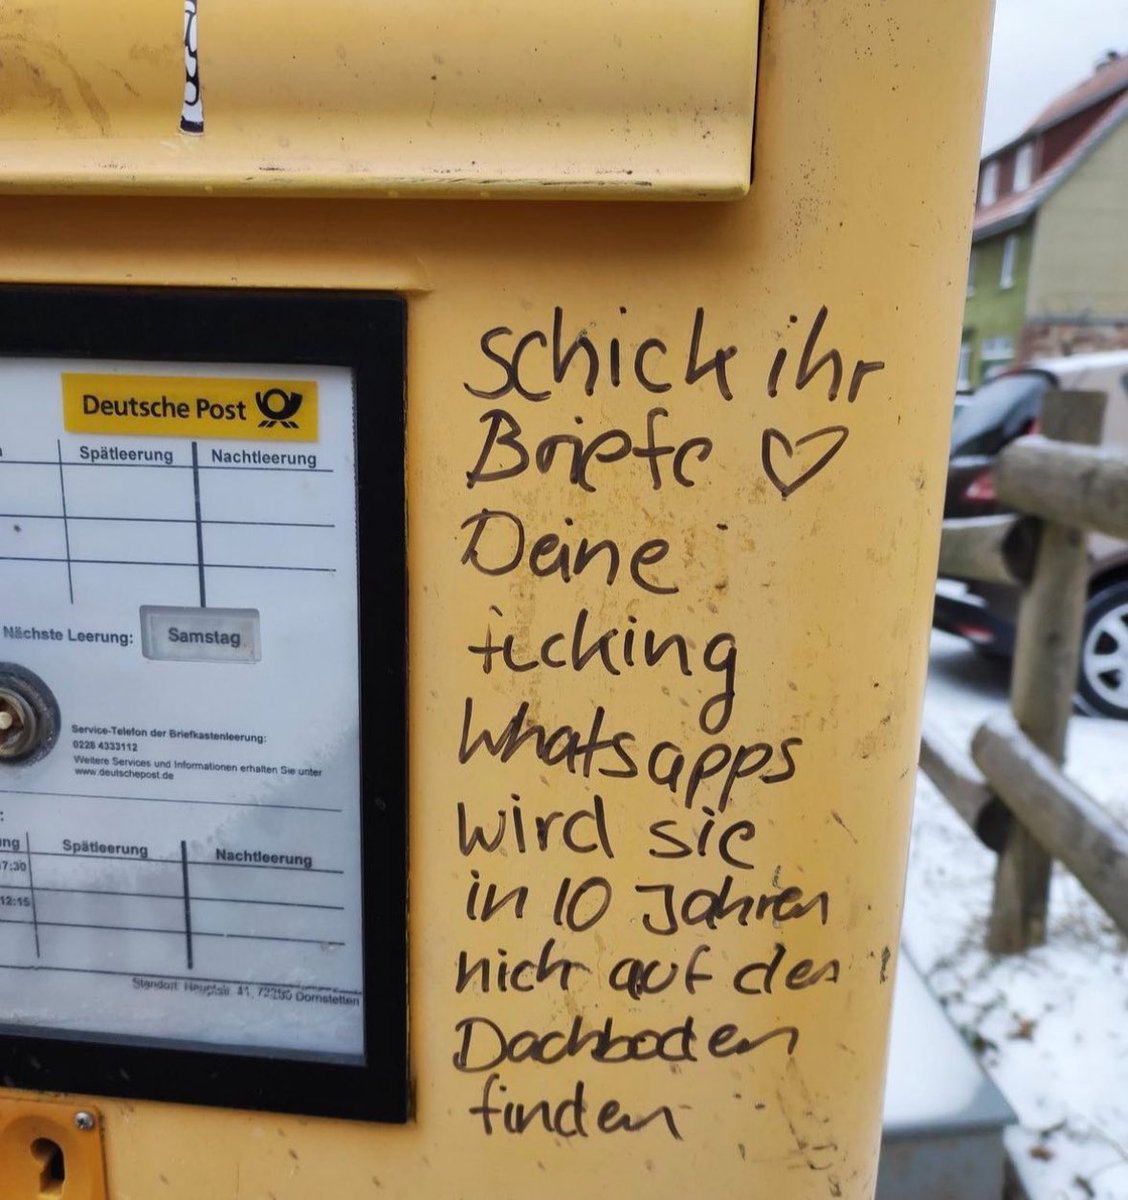 Deutsche Post
Spätleerung Nachtleerung
Nächste Leerung: Samstag
Service-Telefon der Briefkastenleerung:
0228 4333112
Weitere Services und Informationen erhalten Sie unter
www.deutschepost.de
Spätleerung Nachtleerung
17:30
12:15
Standort: Hauptstr. 41, 72280 Dornstetten
schick ihr
Briefe ♡
Deine
fucking
Whatsapps
wird sie
in 10 Jahren
nich auf den
Dachboden
finden